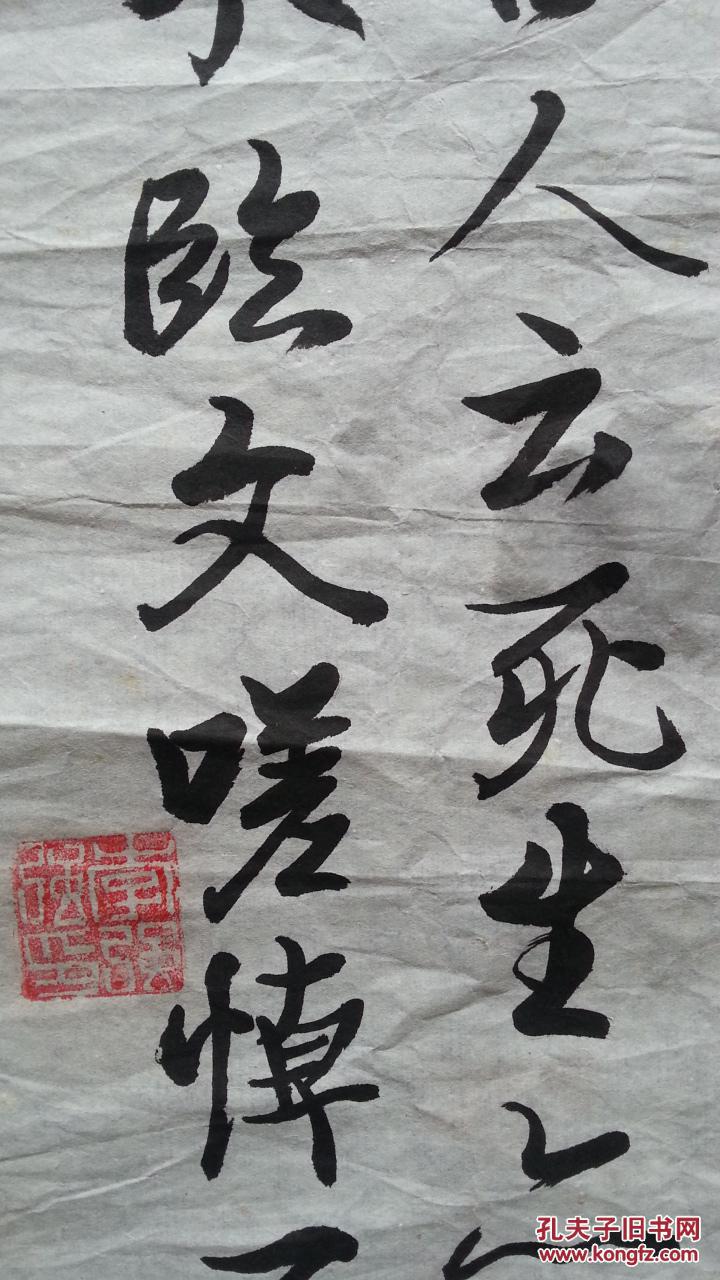 人云死生
臨文嗟悼
孔夫子旧书网
www.kongfz.com